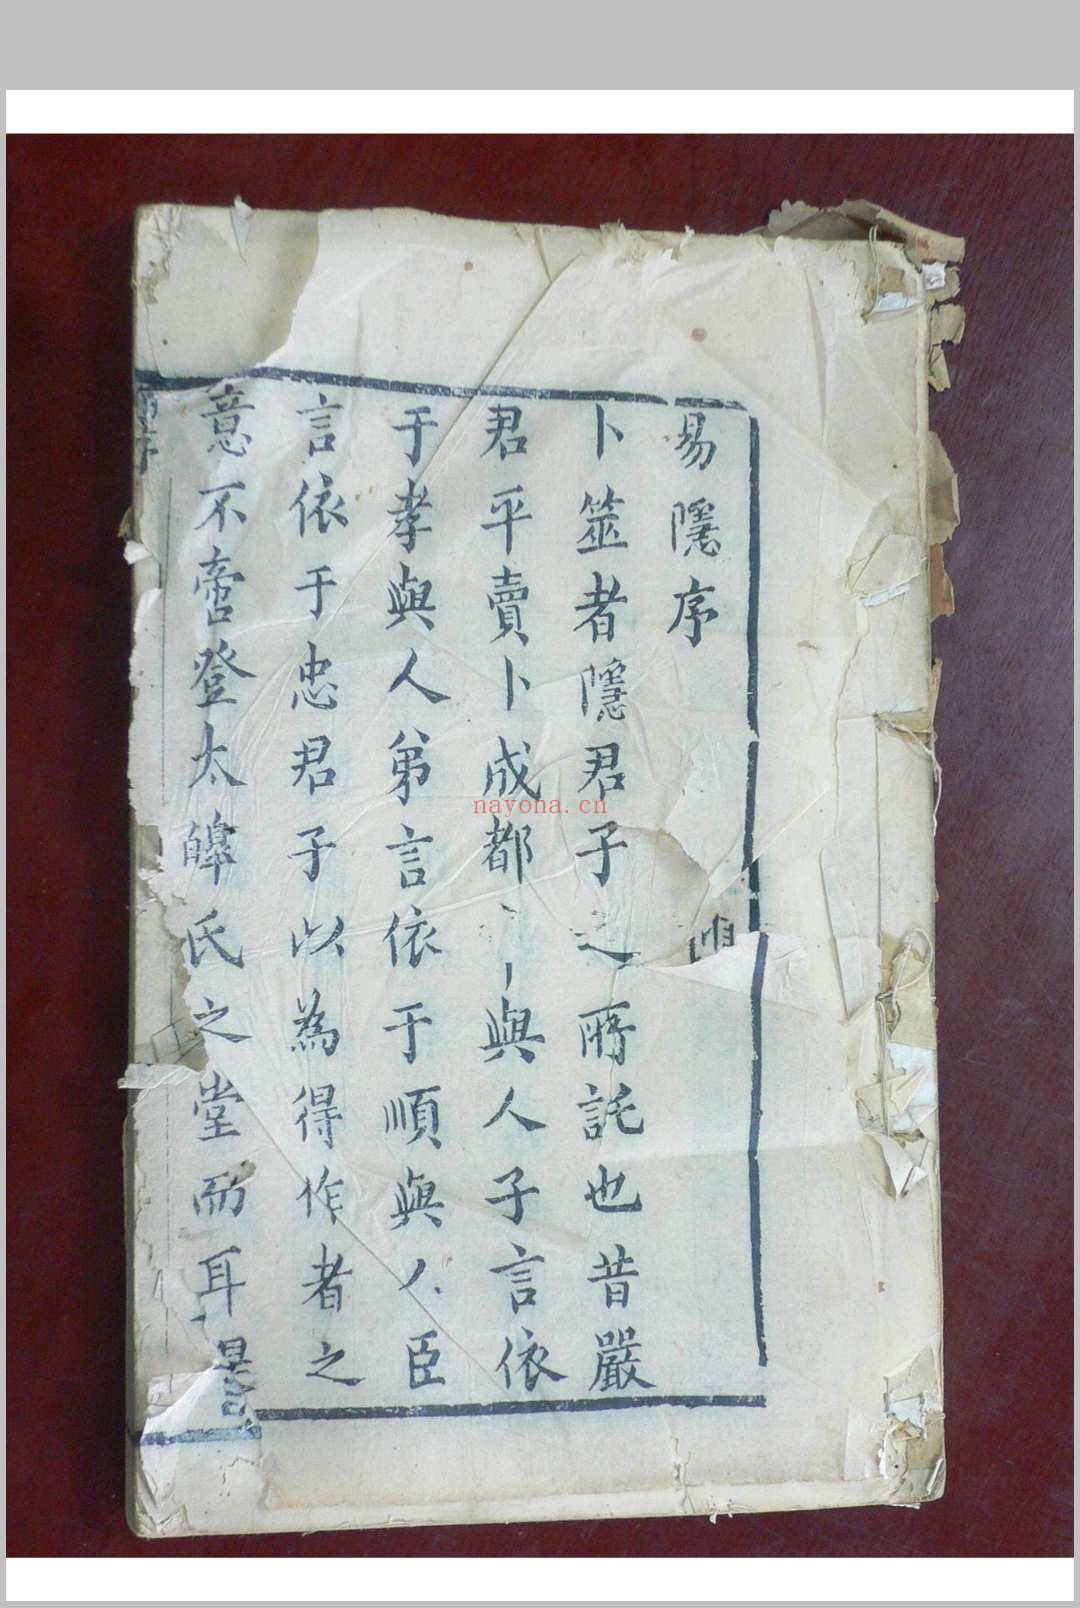 易隱序
卜筮者隱君子之所託也昔嚴
君平賣卜成都與人子言依
于孝與人弟言依于順與人臣
言依于忠君子以為得作者之
意不啻登太皞氏之堂而耳
nayona.cn